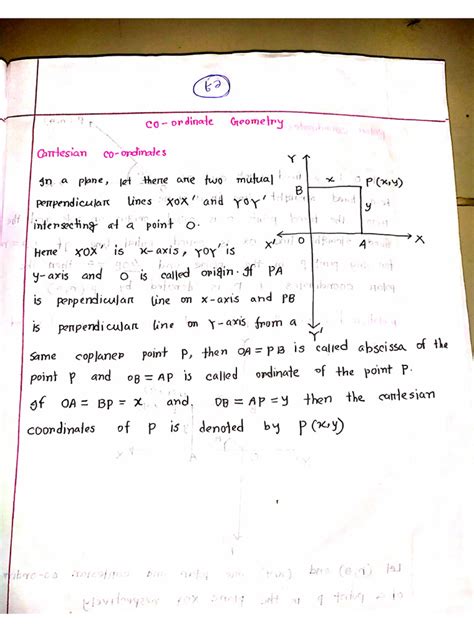 co-ordinate Geometry
Cartesian co-ordinales
In a plane, let there are two mutual
perpendicular lines XOX' and YOY'
intersecting at a point O.
Here XOX' is x-axis, YOY' is
y-axis and O is called origin. If PA
is perpendicular line on x-axis and PB
is perpendicular line on Y-axis from a
same coplaner point P, then OA = PB is called abscissa of the
point P and OB = AP is called ordinate of the point P.
If OA = BP = x and OB = AP = y then the cartesian
coordinales of P is denoted by P(x,y)
Y
B x P(x,y)
y
X' O A X
Y'